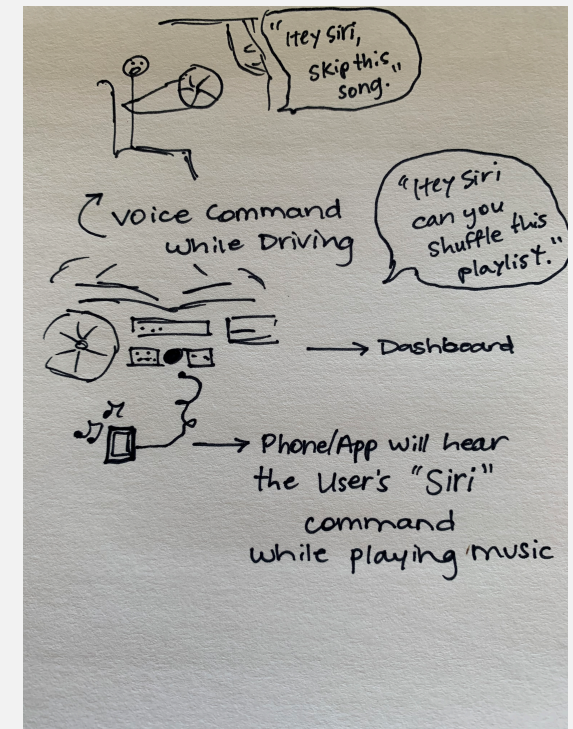 "Hey Siri,
skip this
song."
Voice Command
while Driving
"Hey Siri
can you
shuffle this
playlist."
Dashboard
Phone/App will hear
the User's "Siri"
command
while playing music